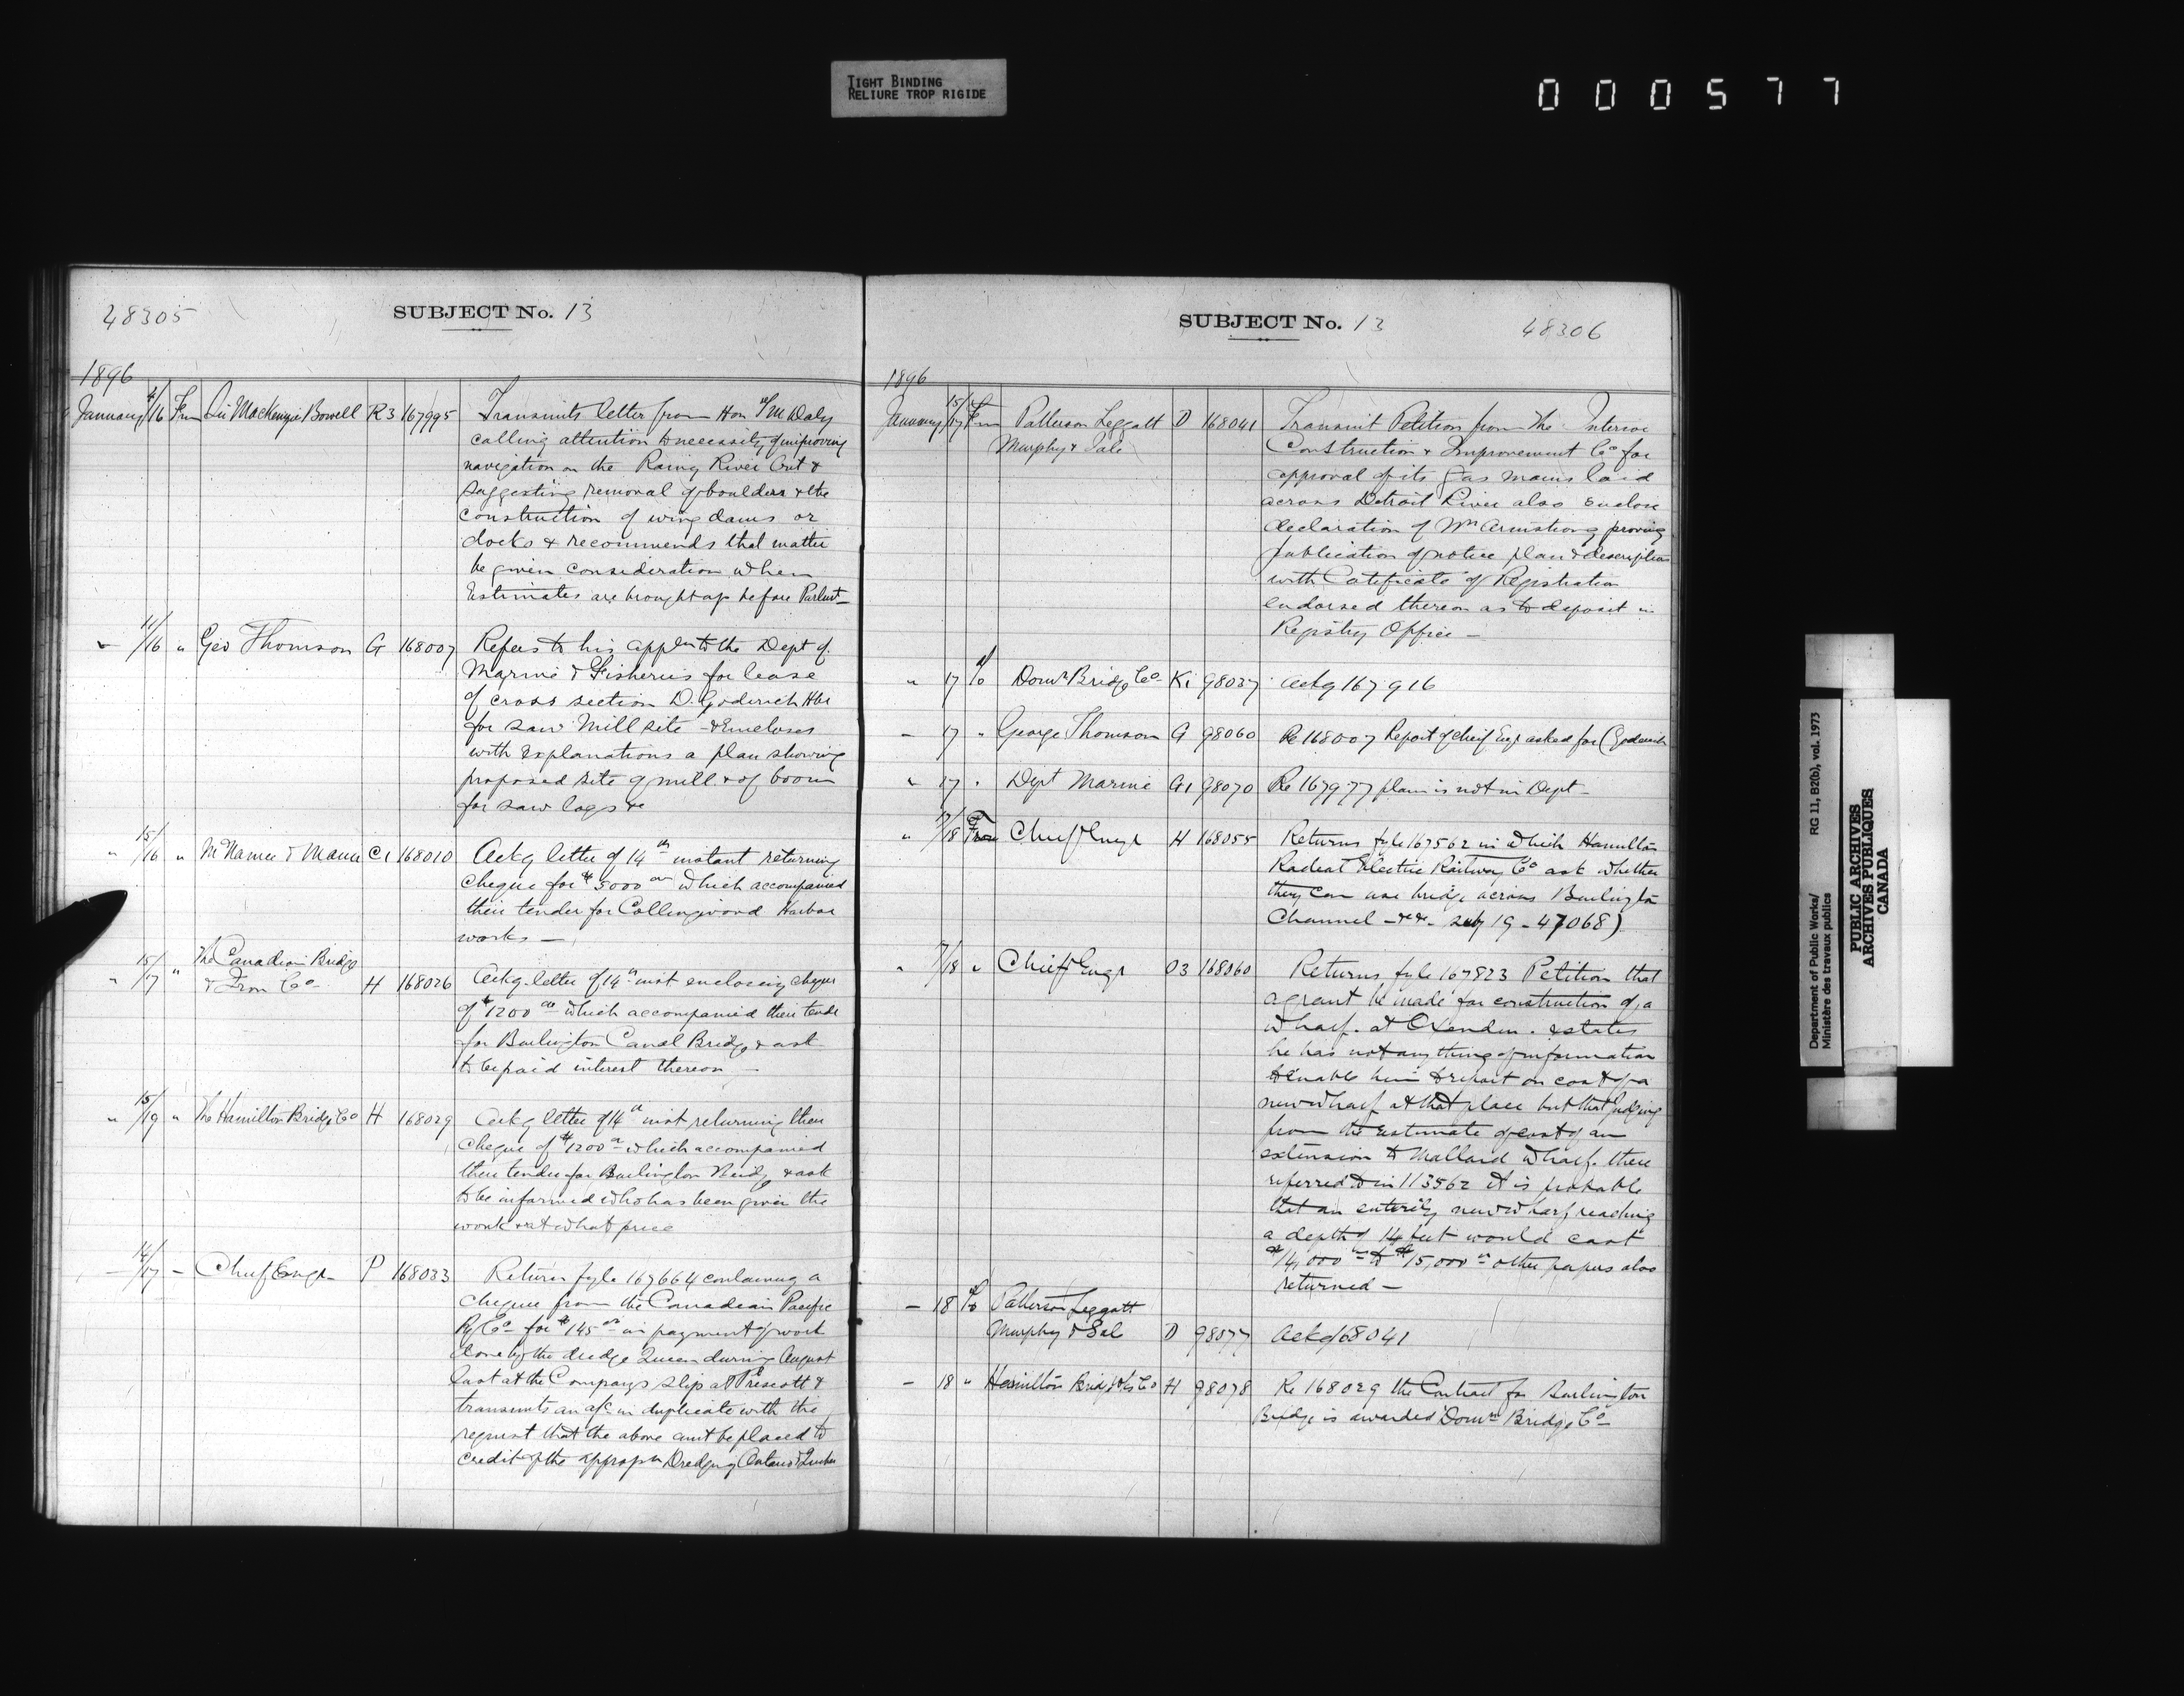 TIGHT BINDING
RELIURE TROP RIGIDE
000577
48305
SUBJECT No. 13
1896
January 4/16 From Sir MacKenzie Bowell R3 167995 Transmits letter from Hon T M Daly
calling attention to necessity of improving
navigation on the Rainy River Ont &
suggesting removal of boulders & the
construction of wing dams or
docks & recommends that matter
be given consideration when
Estimates are brought up before Parlmt
" 11/16 " Geo Thomson G 168007 Refers to his appln to the Dept of
Marine & Fisheries for lease
of cross section D. Goderich Hbr
for saw mill site & Encloses
with explanations a plan showing
proposed site of mill & of boom
for saw logs &c
" 15/16 " McNamee & Mann C1 168010 Ackg letter of 14th instant returning
cheque for $5000 00 which accompanied
their tender for Collingwood Harbor
works —
" 15/17 " The Canadian Bridge
& Iron Co H 168026 Ackg letter of 14th inst enclosing cheque
of $1200 00 which accompanied their tender
for Burlington Canal Bridge & ask
to be paid interest thereon —
" 15/19 " The Hamilton Bridge Co H 168029 Ackg letter of 14th inst returning their
cheque of $1200 00 which accompanied
their tender for Burlington Bridge & ask
to be informed who has been given the
work & at what price
— 14/17 — Chief Engr P 168033 Returns fyle 167664 containing a
cheque from the Canadian Pacific
Ry Co for $145 00 in payment of work
done by the dredge Queen during August
last at the Company's slip at Prescott &
transmits an a/c in duplicate with the
request that the above amt be placed to
credit of the appropn Dredging Ontario & Quebec
SUBJECT No. 13
48306
1896
January 15/17 From Patterson Leggatt D 168041 Transmit Petition from The Interior
Murphy & Sale
Construction & Improvement Co for
approval of its Gas mains laid
across Detroit River also enclose
declaration of Wm Armstrong proving
publication of notice plan & description
with Certificate of Registration
endorsed thereon as to deposit in
Registry Office —
" 17 To Domn Bridge Co Ki 98037 Ackg 167916
— 17 " George Thomson G 98060 Re 168007 Report of Chief Engr asked for (Goderich
" 17 " Dept Marine G1 98070 Re 167977 plan is not in Dept —
" 17/18 From Chief Engr H 168055 Returns fyle 167562 in which Hamilton
Radial Electric Railway Co ask whether
they can use bridge across Burlington
Channel — &c. — subj 19 - 47068)
" 7/18 " Chief Engr O3 168060 Returns fyle 167823 Petition that
a grant be made for construction of a
wharf at Oxenden. & states
he has not any thing of information
to enable him to report on cost of a
new wharf at that place but that judging
from the estimate of cost of an
extension to Mallard wharf there
referred to in 113562 it is probable
that an entirely new wharf reaching
a depth of 14 feet would cost
$14,000 00 to $15,000 00 other papers also
returned —
— 18 To Patterson Leggatt
Murphy & Sale D 98077 Ackg 168041
— 18 " Hamilton Bridge Wks Co H 98078 Re 168029 the Contract for Burlington
Bridge is awarded Domn Bridge Co —
Department of Public Works/
Ministère des travaux publics
RG 11, B2(b), vol. 1973
PUBLIC ARCHIVES
ARCHIVES PUBLIQUES
CANADA